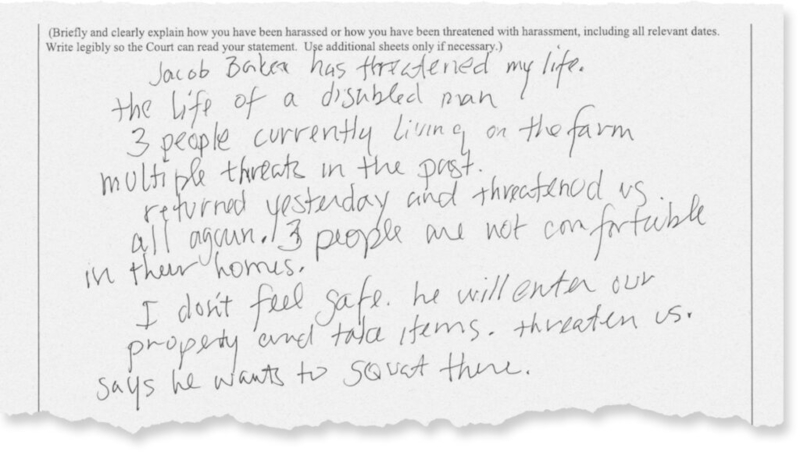 (Briefly and clearly explain how you have been harassed or how you have been threatened with harassment, including all relevant dates.
Write legibly so the Court can read your statement.  Use additional sheets only if necessary.)
Jacob Baker has threatened my life.
the life of a disabled man
3 people currently living on the farm
multiple threats in the past.
returned yesterday and threatened us
all again. 3 people are not comfortable
in their homes.
I don't feel safe. he will enter our
property and take items. threaten us.
says he wants to squat there.